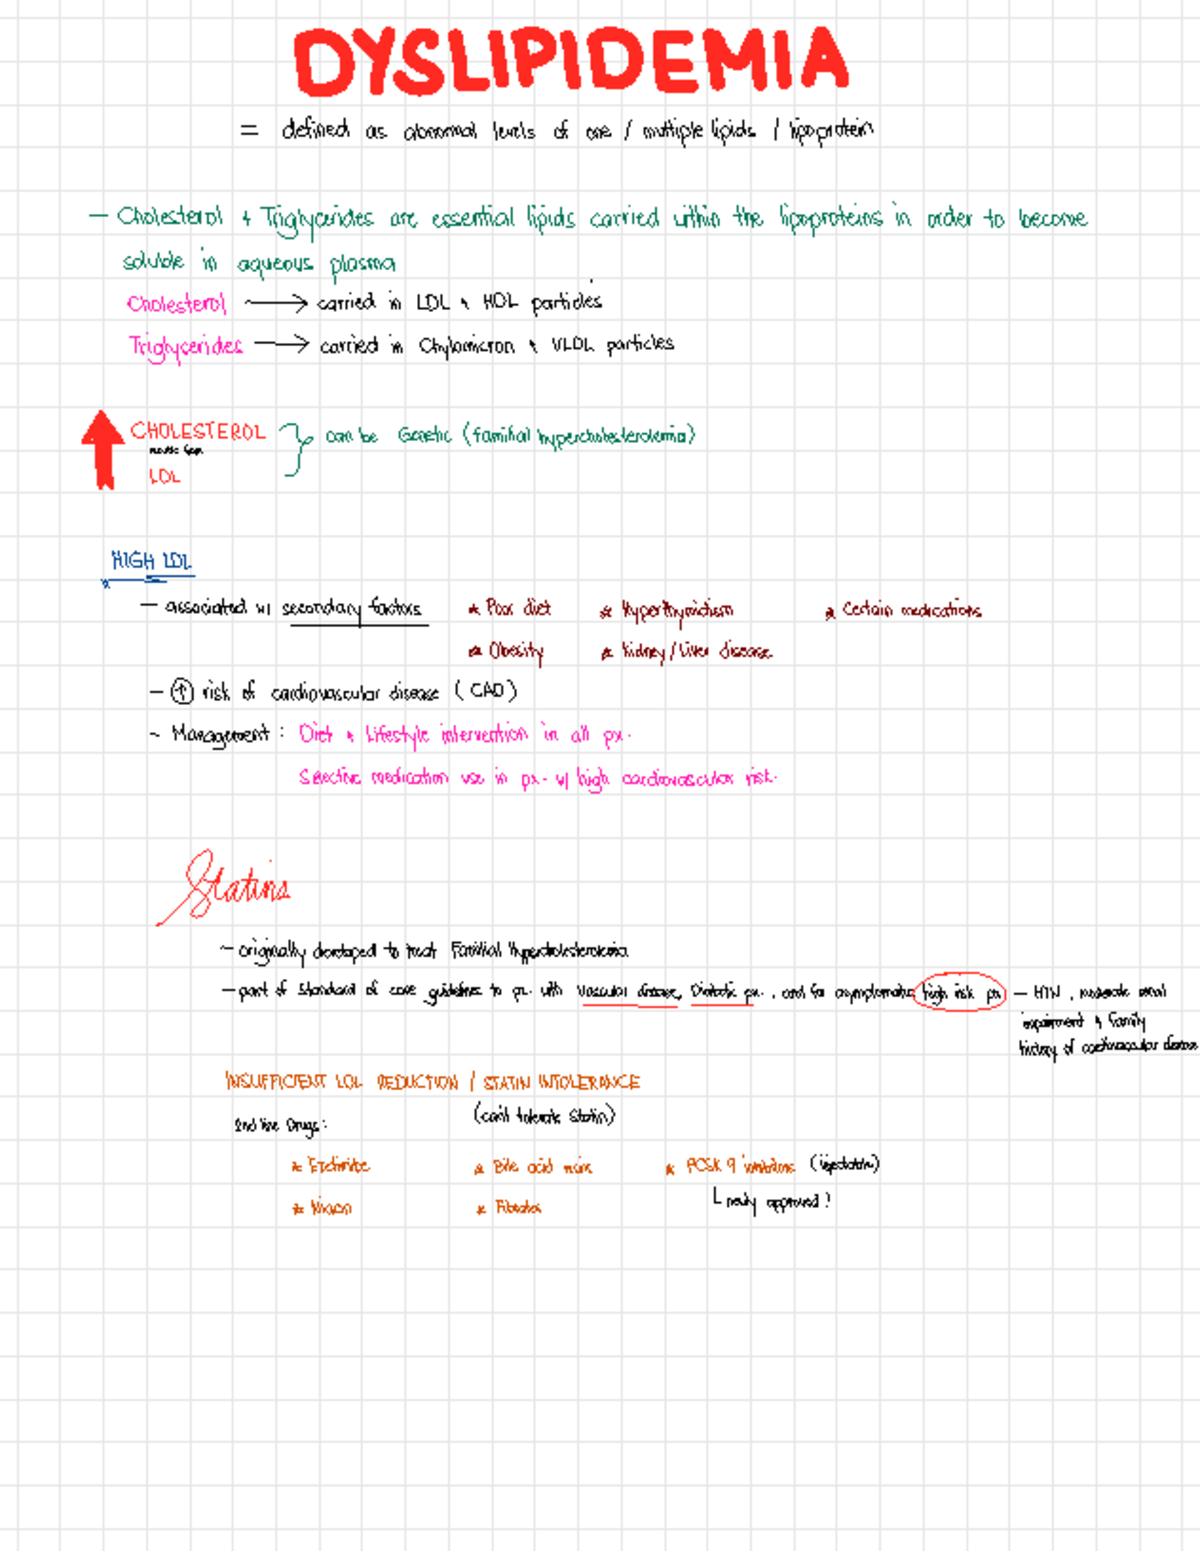 DYSLIPIDEMIA
= defined as abnormal levels of one / multiple lipids / lipoprotein
— Cholesterol + Triglycerides are essential lipids carried within the lipoproteins in order to become
soluble in aqueous plasma
Cholesterol → carried in LDL & HDL particles
Triglycerides → carried in Chylomicron & VLDL particles
CHOLESTEROL } can be Genetic (familial hypercholesterolemia)
LDL
HIGH LDL
— associated w/ secondary factors * Poor diet * Hyperthyroidism * Certain medications
* Obesity * Kidney/Liver disease
— ↑ risk of cardiovascular disease (CAD)
- Management: Diet & Lifestyle intervention in all px.
Selective medication use in px. w/ high cardiovascular risk.
Statins
- originally developed to treat Familial Hypercholesterolemia
- part of standard of care guidelines to px. with vascular disease, Diabetic px., and for asymptomatic high risk px — HTN, moderate renal
impairment & family
history of cardiovascular disease
INSUFFICIENT LDL REDUCTION / STATIN INTOLERANCE
(can't tolerate statin)
2nd line Drugs:
* Ezetimibe * Bile acid resins * PCSK 9 inhibitors (injectable)
* Niacin * Fibrates └ newly approved!